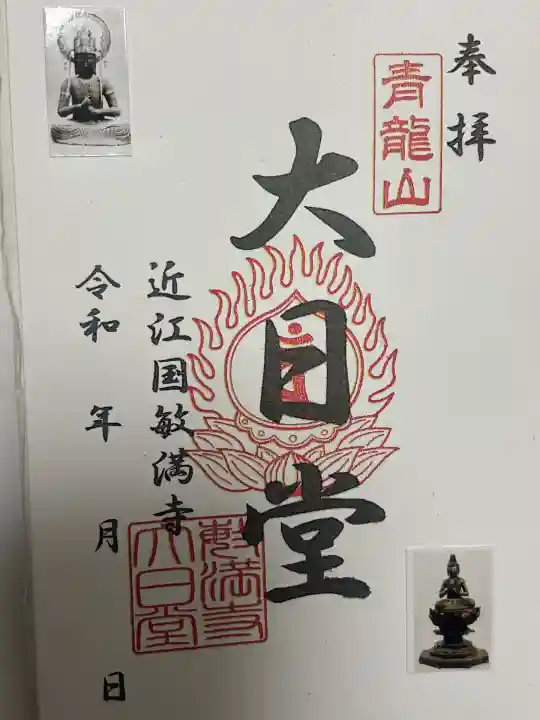 奉拝
青龍山
大日堂
近江国敏満寺
令和 年 月 日
敏満寺
大日堂